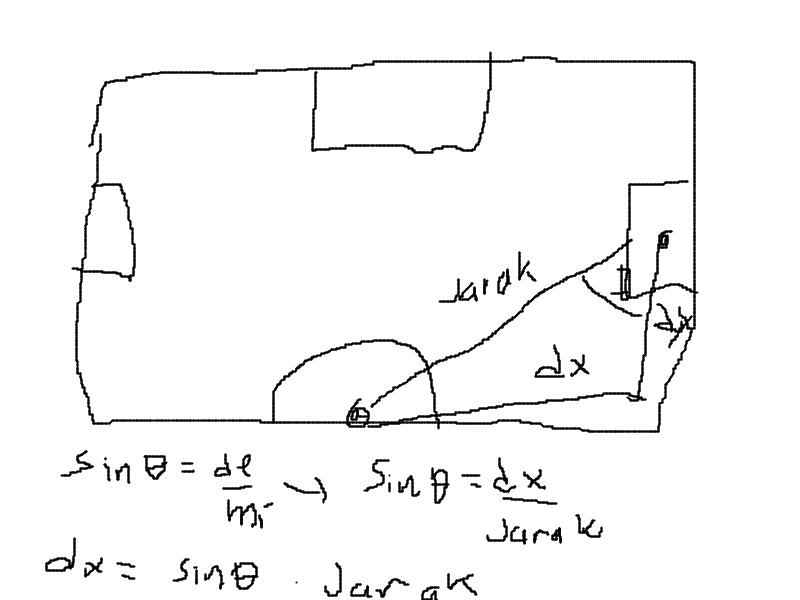 Jarak
dx
dx
sin θ = de/mi → sin θ = dx/Jarak
dx = sin θ . Jarak